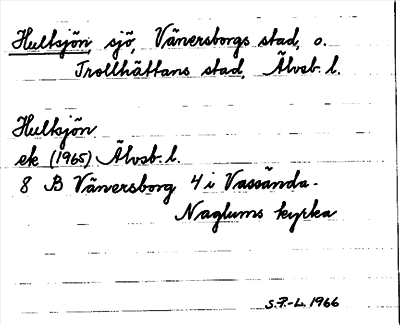 Hultsjön, sjö, Vänersborgs stad, o.
Trollhättans stad, Älvsb. l.
Hultsjön
ek (1965) Älvsb. l.
8 B Vänersborg 4 i Vassända-
Naglums kyrka
S.P.-L. 1966